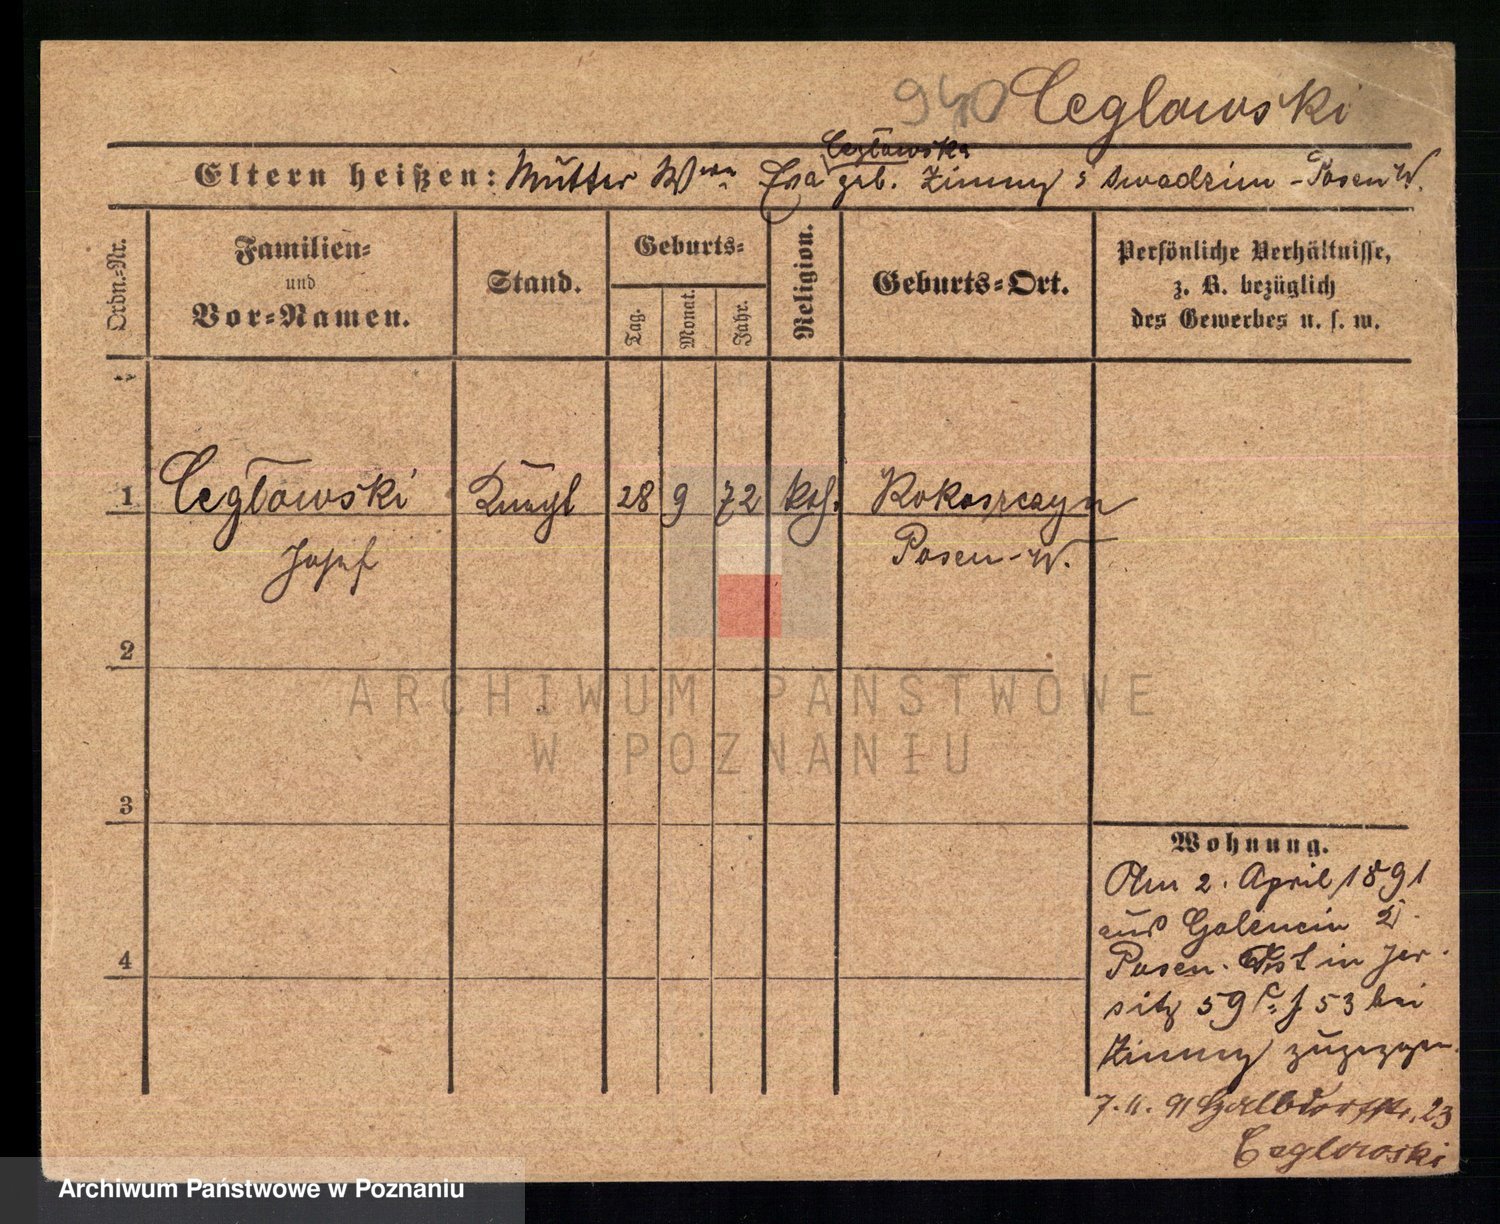 940 Ceglowski
Ceglowska
Eltern heißen: Mutter Wwe Eva geb. Zimny, Swadzim - Posen W.
Ordn.-Nr.
Familien-
und
Vor-Namen.
Stand.
Geburts-
Tag.
Monat.
Jahr.
Religion.
Geburts-Ort.
Persönliche Verhältnisse,
z. B. bezüglich
des Gewerbes u. s. w.
1 Ceglowski 28 9 72 kth. Rokoszczyn
Josef Posen-W.
2
3
4
Wohnung.
Am 2. April 1891
aus Golencin
Posen. Ost in Jer-
sitz 59 53 bei
Zimny zugezogen.
7.11.91 Halbdorfstr. 23
Ceglowski
ARCHIWUM PAŃSTWOWE
W POZNANIU
Archiwum Państwowe w Poznaniu